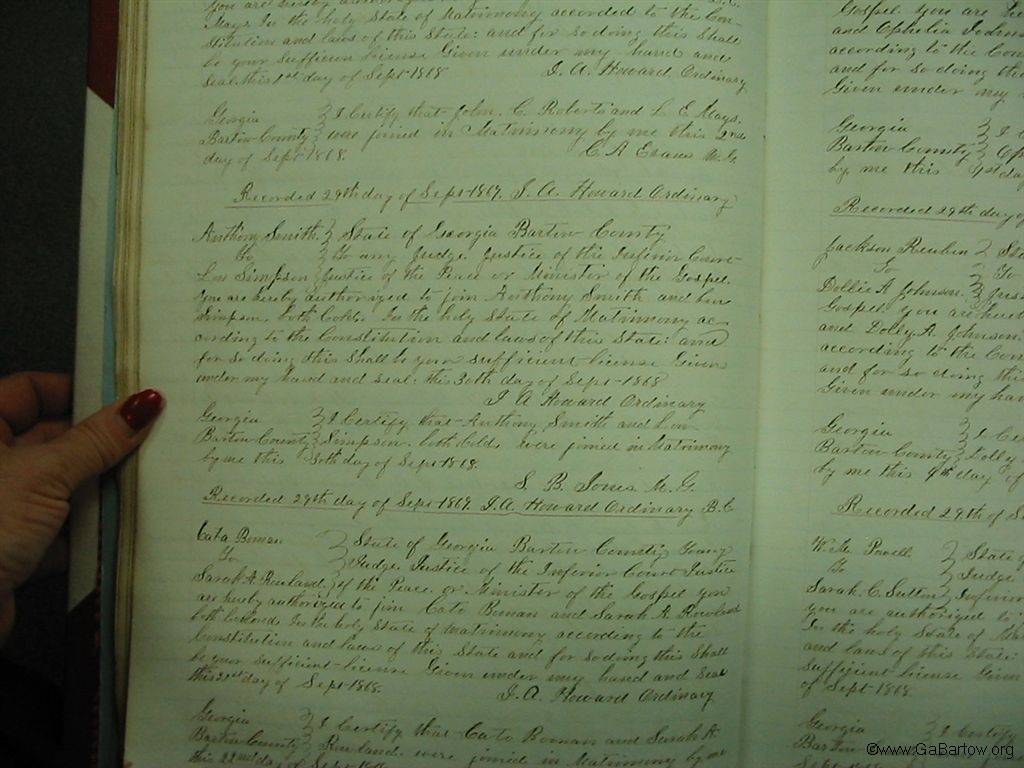 you are hereby
Mays. In the holy State of Matrimony accorded to the Con-
stitution and laws of this State: and for so doing this Shall
be your sufficien license Given under my hand and
seal this 1st day of Sept 1868
J. A. Howard Ordinary
Georgia } I Certify that John. C. Roberts and L E Mays.
Bartow County } was joined in Matrimony by me this 2nd
day of Sept 1868.
C A Evans M. G.
Recorded 29th day of Sept 1869. J. A. Howard Ordinary
Anthony Smith } State of Georgia Bartow County
To } To any Judge. Justice of the Inferior Court
Lou Simpson } Justice of the Peace or Minister of the Gospel.
You are hereby authorized to join Anthony Smith and Lou
Simpson, both Cold. In the holy State of Matrimony ac-
cording to the Constitution and laws of this State: and
for so doing this Shall be your sufficient license Given
under my hand and seal: this 30th day of Sept 1868
J A Howard Ordinary
Georgia } I Certify that Anthony Smith and Lou
Bartow County } Simpson. both Cold. were joined in Matrimony
by me this 30th day of Sept 1868.
S. B. Jones M. G.
Recorded 29th day of Sept 1869. J. A. Howard Ordinary B. C
Cato Boman } State of Georgia Bartow County To any
To } Judge. Justice of the Inferior Court Justice
Sarah A. Rowland. } of the Peace. or Minister of the Gospel you
are hereby authorized to join Cato Boman and Sarah A. Rowland
both In the holy State of matrimony according to the
Constitution and laws of this State and for so doing this Shall
be your sufficient license Given under my hand and Seal
this 21st day of Sept 1868.
J. A. Howard Ordinary
Georgia } I Certify that Cato Boman and Sarah A
Bartow County } Rowland. were joined in Matrimony by me
this 22nd day of Sept 1868
Gospel. You are he
and Ophelia
according to the Con
and for so doing th
Given under my
Georgia } I C
Bartow County }
by me this 1st day
Recorded 29th day of
Jackson Reuben } Sta
To } To
Dollie A Johnson. } Jus
Gospel. you are her
and Dolly. A Johnson.
according to the Con
and for so doing this
Given under my han
Georgia } I Cer
Bartow County } Dolly
by me this 9th day of
Recorded 29th of S
Powell } State of
To } Judge
Sarah. C. Sutton } Inferior
you are authorized to
In the holy State of
and laws of this State:
sufficient license Given
of Sept 1868.
Georgia } I Certify
Bartow
©www.GaBartow.org